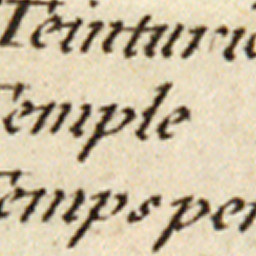 Teinturi
Temple
Temps per